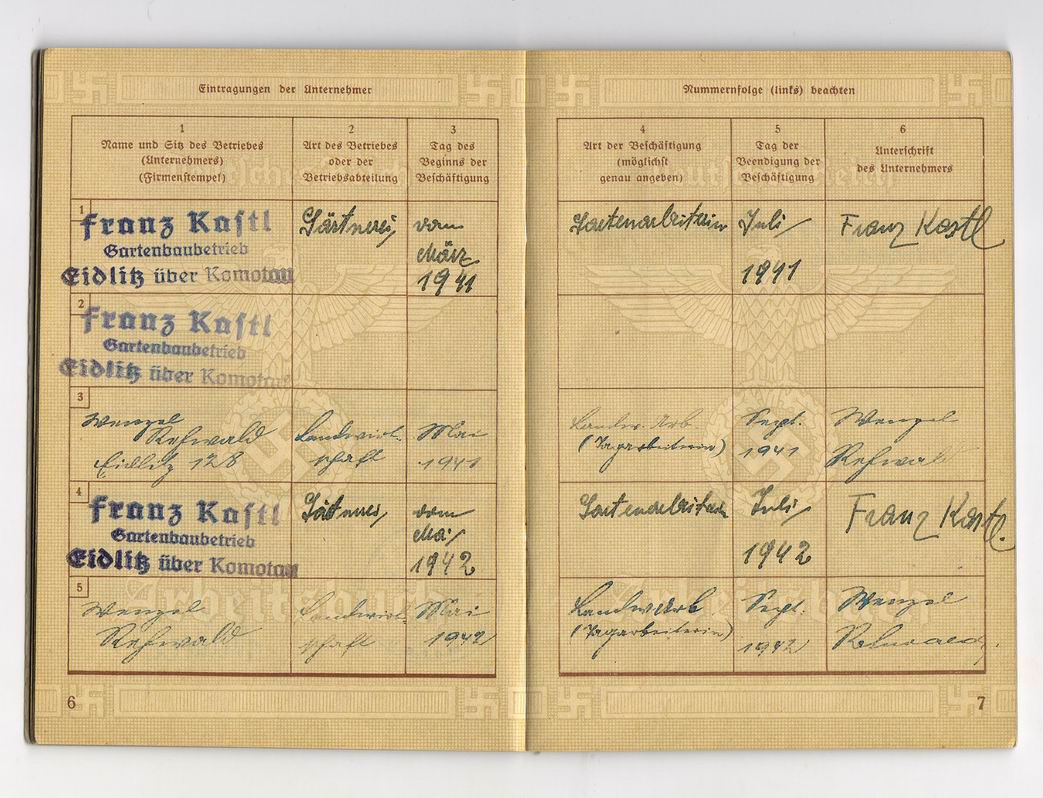 Eintragungen der Unternehmer
1
Name und Sitz des Betriebes
(Unternehmers)
(Firmenstempel)
2
Art des Betriebes
oder der
Betriebsabteilung
3
Tag des
Beginns der
Beschäftigung
1
Franz Kastl
Gartenbaubetrieb
Eidlitz über Komotau
Gärtnerei
vom
März
1941
2
Franz Kastl
Gartenbaubetrieb
Eidlitz über Komotau
3
Wenzel
Rehwald
Eidlitz 128
Landwirt-
schaft
Mai
1941
4
Franz Kastl
Gartenbaubetrieb
Eidlitz über Komotau
Gärtnerei
vom
Mai
1942
5
Wenzel
Rehwald
Landwirt-
schaft
Mai
1942
6
Nummernfolge (links) beachten
4
Art der Beschäftigung
(möglichst
genau angeben)
5
Tag der
Beendigung der
Beschäftigung
6
Unterschrift
des Unternehmers
Gartenarbeiterin
Juli
1941
Franz Kastl
Landw. Arb
(Tagarbeiterin)
Sept.
1941
Wenzel
Rehwald
Gartenarbeiterin
Juli
1942
Franz Kastl.
Landw Arb
(Tagarbeiterin)
Sept.
1942
Wenzel
Rehwald
7
Deutsches Reich
Arbeitsbuch